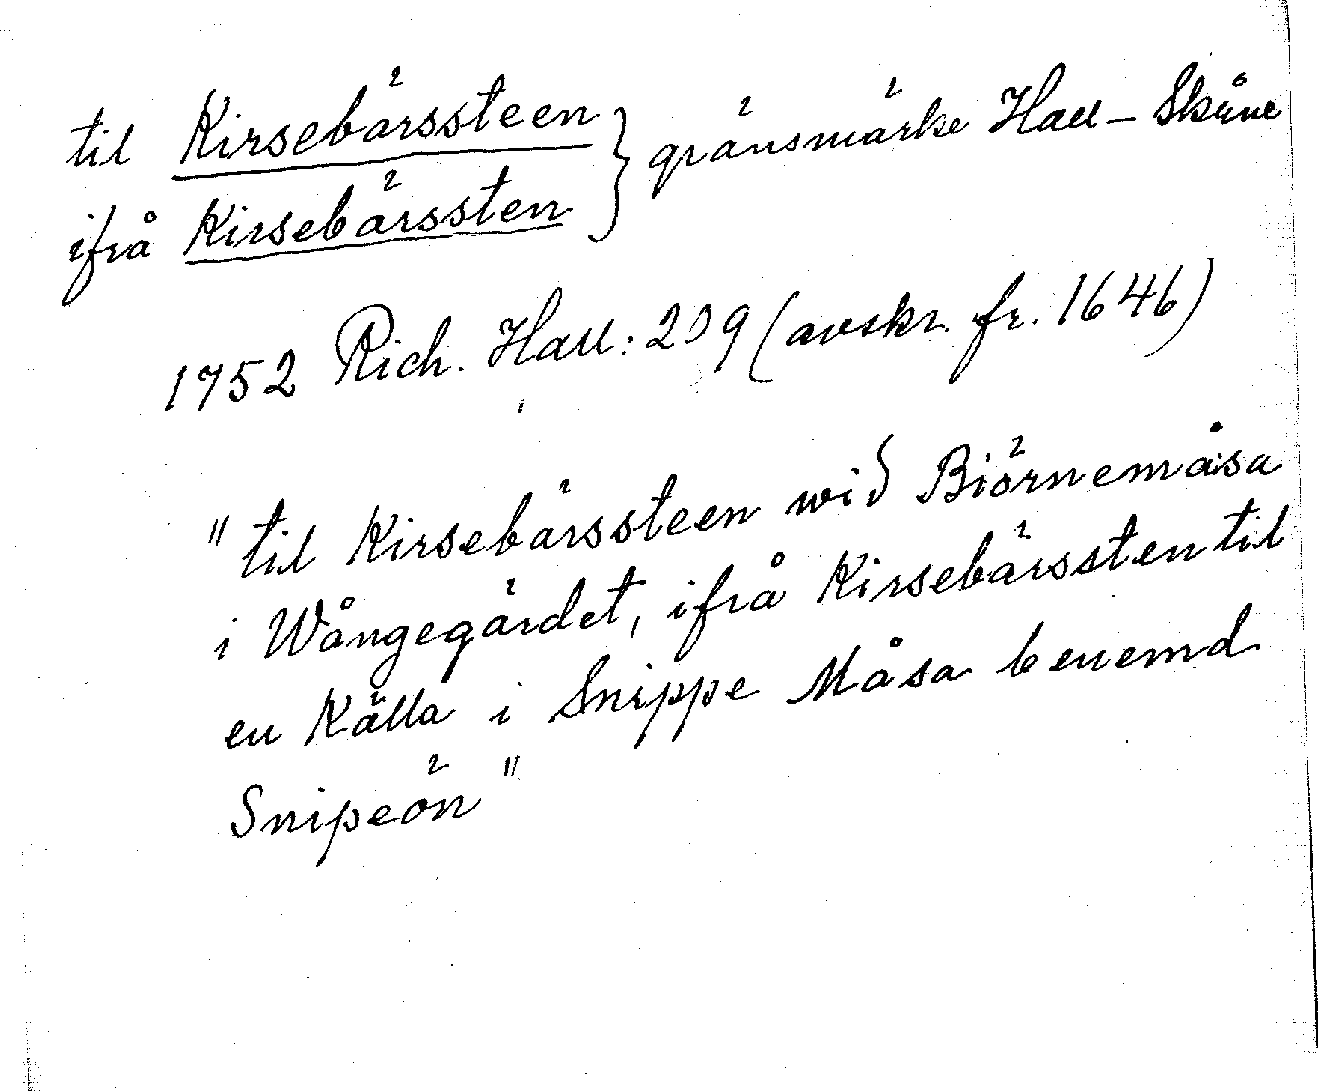 til Kirsebärssteen } gränsmärke Hall – Skåne
ifrå Kirsebärssten
1752 Rich. Hall: 209 (avskr. fr. 1646)
"til Kirsebärssteen wid Biörnemåsa
i Wångegärdet, ifrå Kirsebärssten til
en Källa i Snippe Måsa benemd
Snipeön"